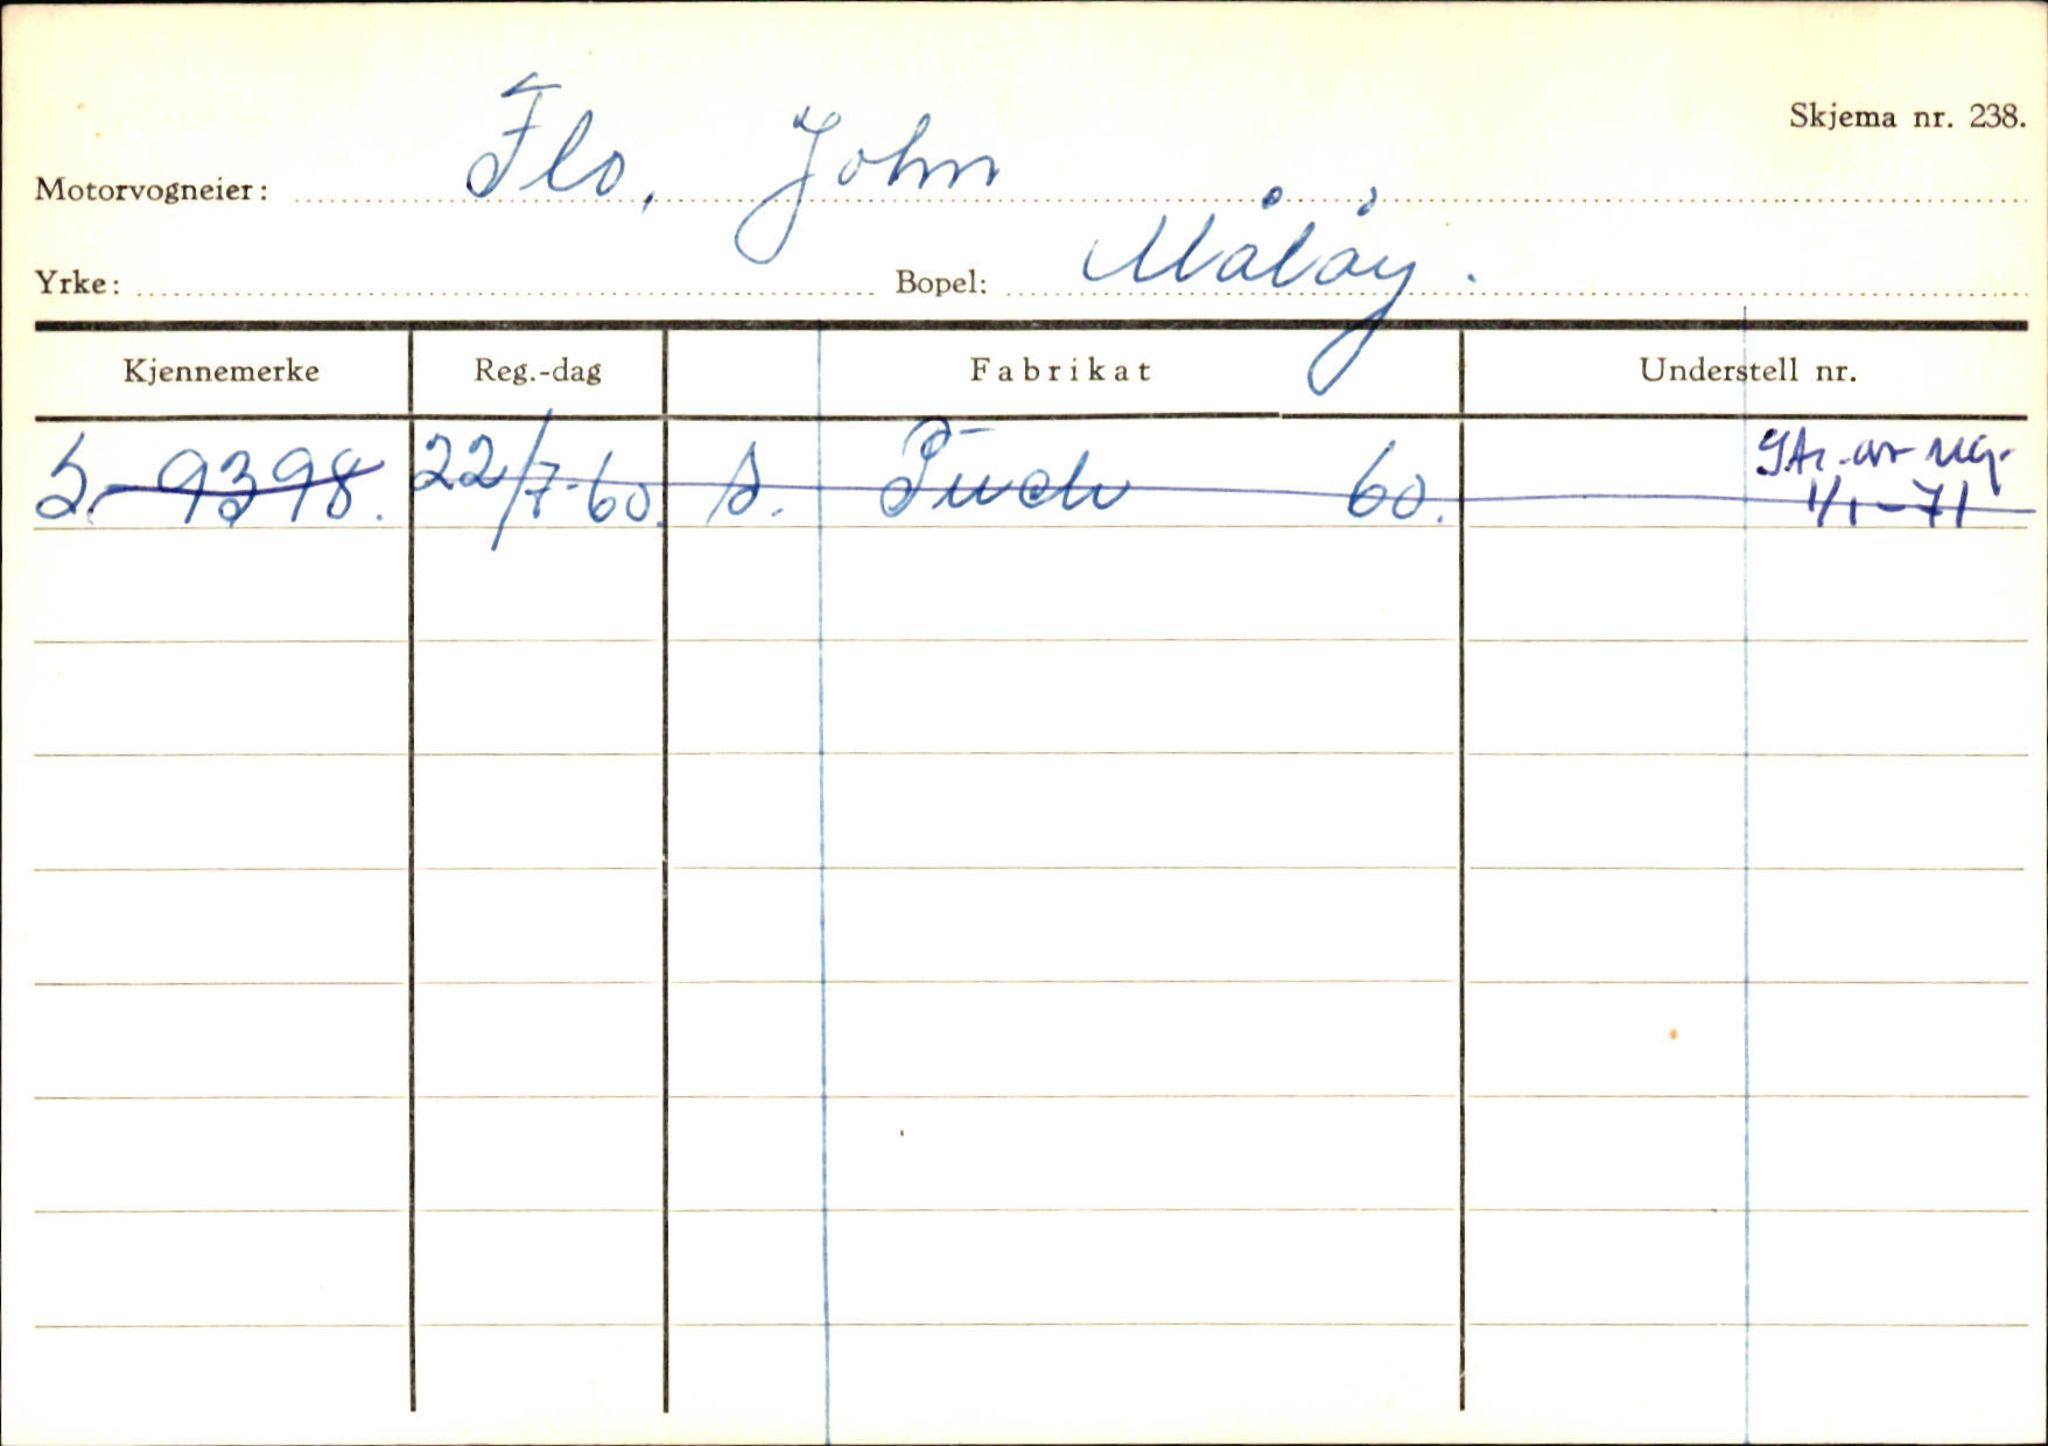 Skjema nr. 238.
Motorvogneier: Flo, John
Yrke: Bopel: Måløy.
Kjennemerke Reg.-dag Fabrikat Understell nr.
S-9398. 22/7-60. s. Puch 60. Str. av reg.
1/1-71